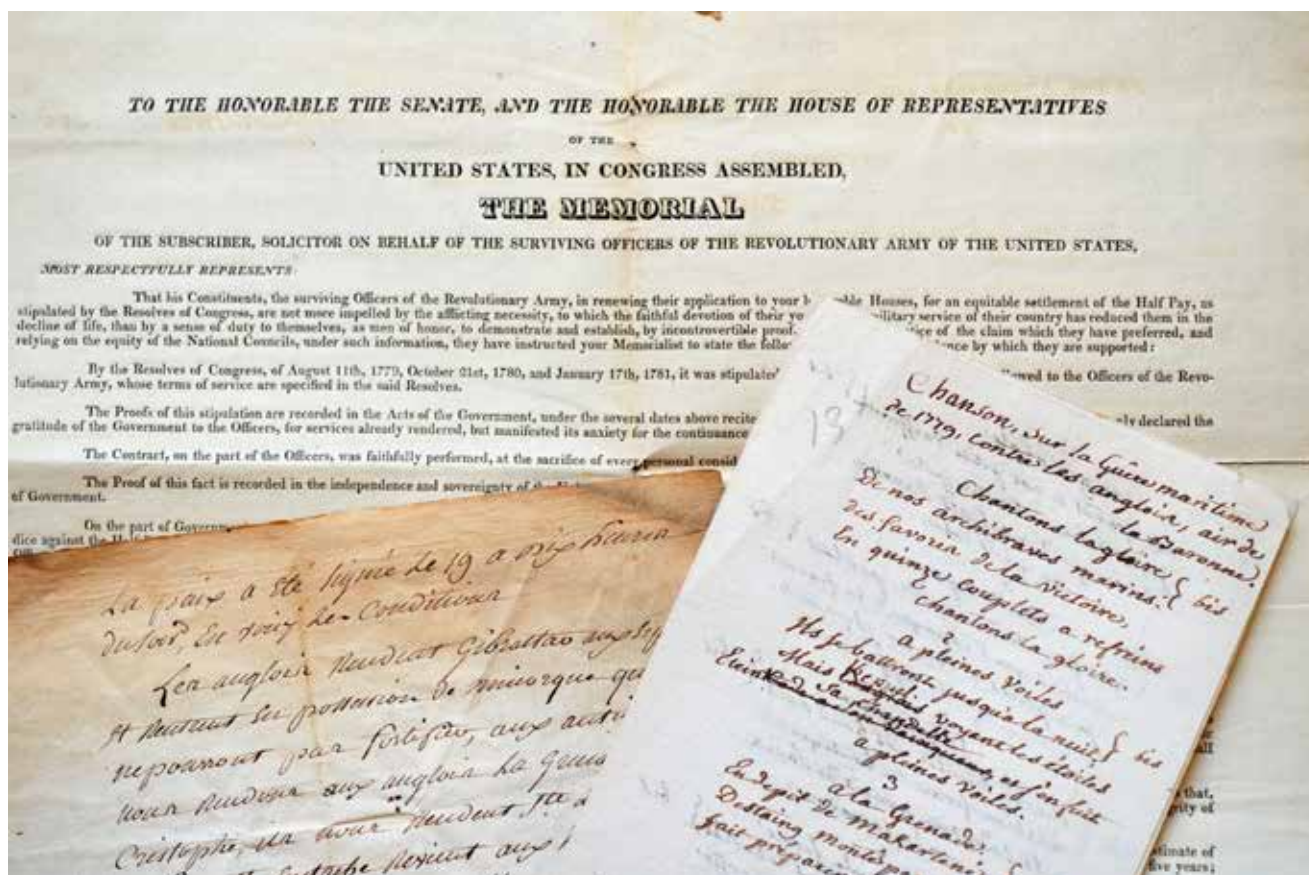 TO THE HONORABLE THE SENATE, AND THE HONORABLE THE HOUSE OF REPRESENTATIVES
OF THE
UNITED STATES, IN CONGRESS ASSEMBLED,
THE MEMORIAL
OF THE SUBSCRIBER, SOLICITOR ON BEHALF OF THE SURVIVING OFFICERS OF THE REVOLUTIONARY ARMY OF THE UNITED STATES,
MOST RESPECTFULLY REPRESENTS
That his Constituents, the surviving Officers of the Revolutionary Army, in renewing their application to your Houses, for an equitable settlement of the Half Pay, as
stipulated by the Resolves of Congress, are not more impelled by the afflicting necessity, to which the faithful devotion of their military service of their country has reduced them in the
decline of life, than by a sense of duty to themselves, as men of honor, to demonstrate and establish, by incontrovertible proof of the claim which they have preferred, and
relying on the equity of the National Councils, under such information, they have instructed your Memorialist to state the by which they are supported:
By the Resolves of Congress, of August 11th, 1779, October 21st, 1780, and January 17th, 1781, it was stipulated to the Officers of the Revo-
lutionary Army, whose terms of service are specified in the said Resolves.
The Proofs of this stipulation are recorded in the Acts of the Government, under the several dates above declared the
gratitude of the Government to the Officers, for services already rendered, but manifested its anxiety for the continuance
The Contract, on the part of the Officers, was faithfully performed, at the sacrifice of every personal
The Proof of this fact is recorded in the independence and sovereignty of
of Government.
On the part of
dice against the
that,
of
of
five years;
La paix a été signée le 19 a
du soir, En voicy les Conditions
Les anglois Rendent Gibraltar aux
et Restent En possession de minorque
ne pourront pas fortifier, aux
nous Rendons aux anglois La
Cristophe, nous Rendent Ste
aux
13
Chanson, sur la Guerre maritime
de 1779, contre les anglois, air de
la Baronne.
Chantons la gloire
De nos archibraves marins. bis
des favoris de la victoire,
En quinze couplets a refrains
Chantons la gloire.
2
a pleines voiles
Ils se battront jusqu'a la nuit, bis
Mais voyant les étoiles
et s'enfuit
a pleines voiles.
3
a la Grenade,
En depit de
Destaing
fait